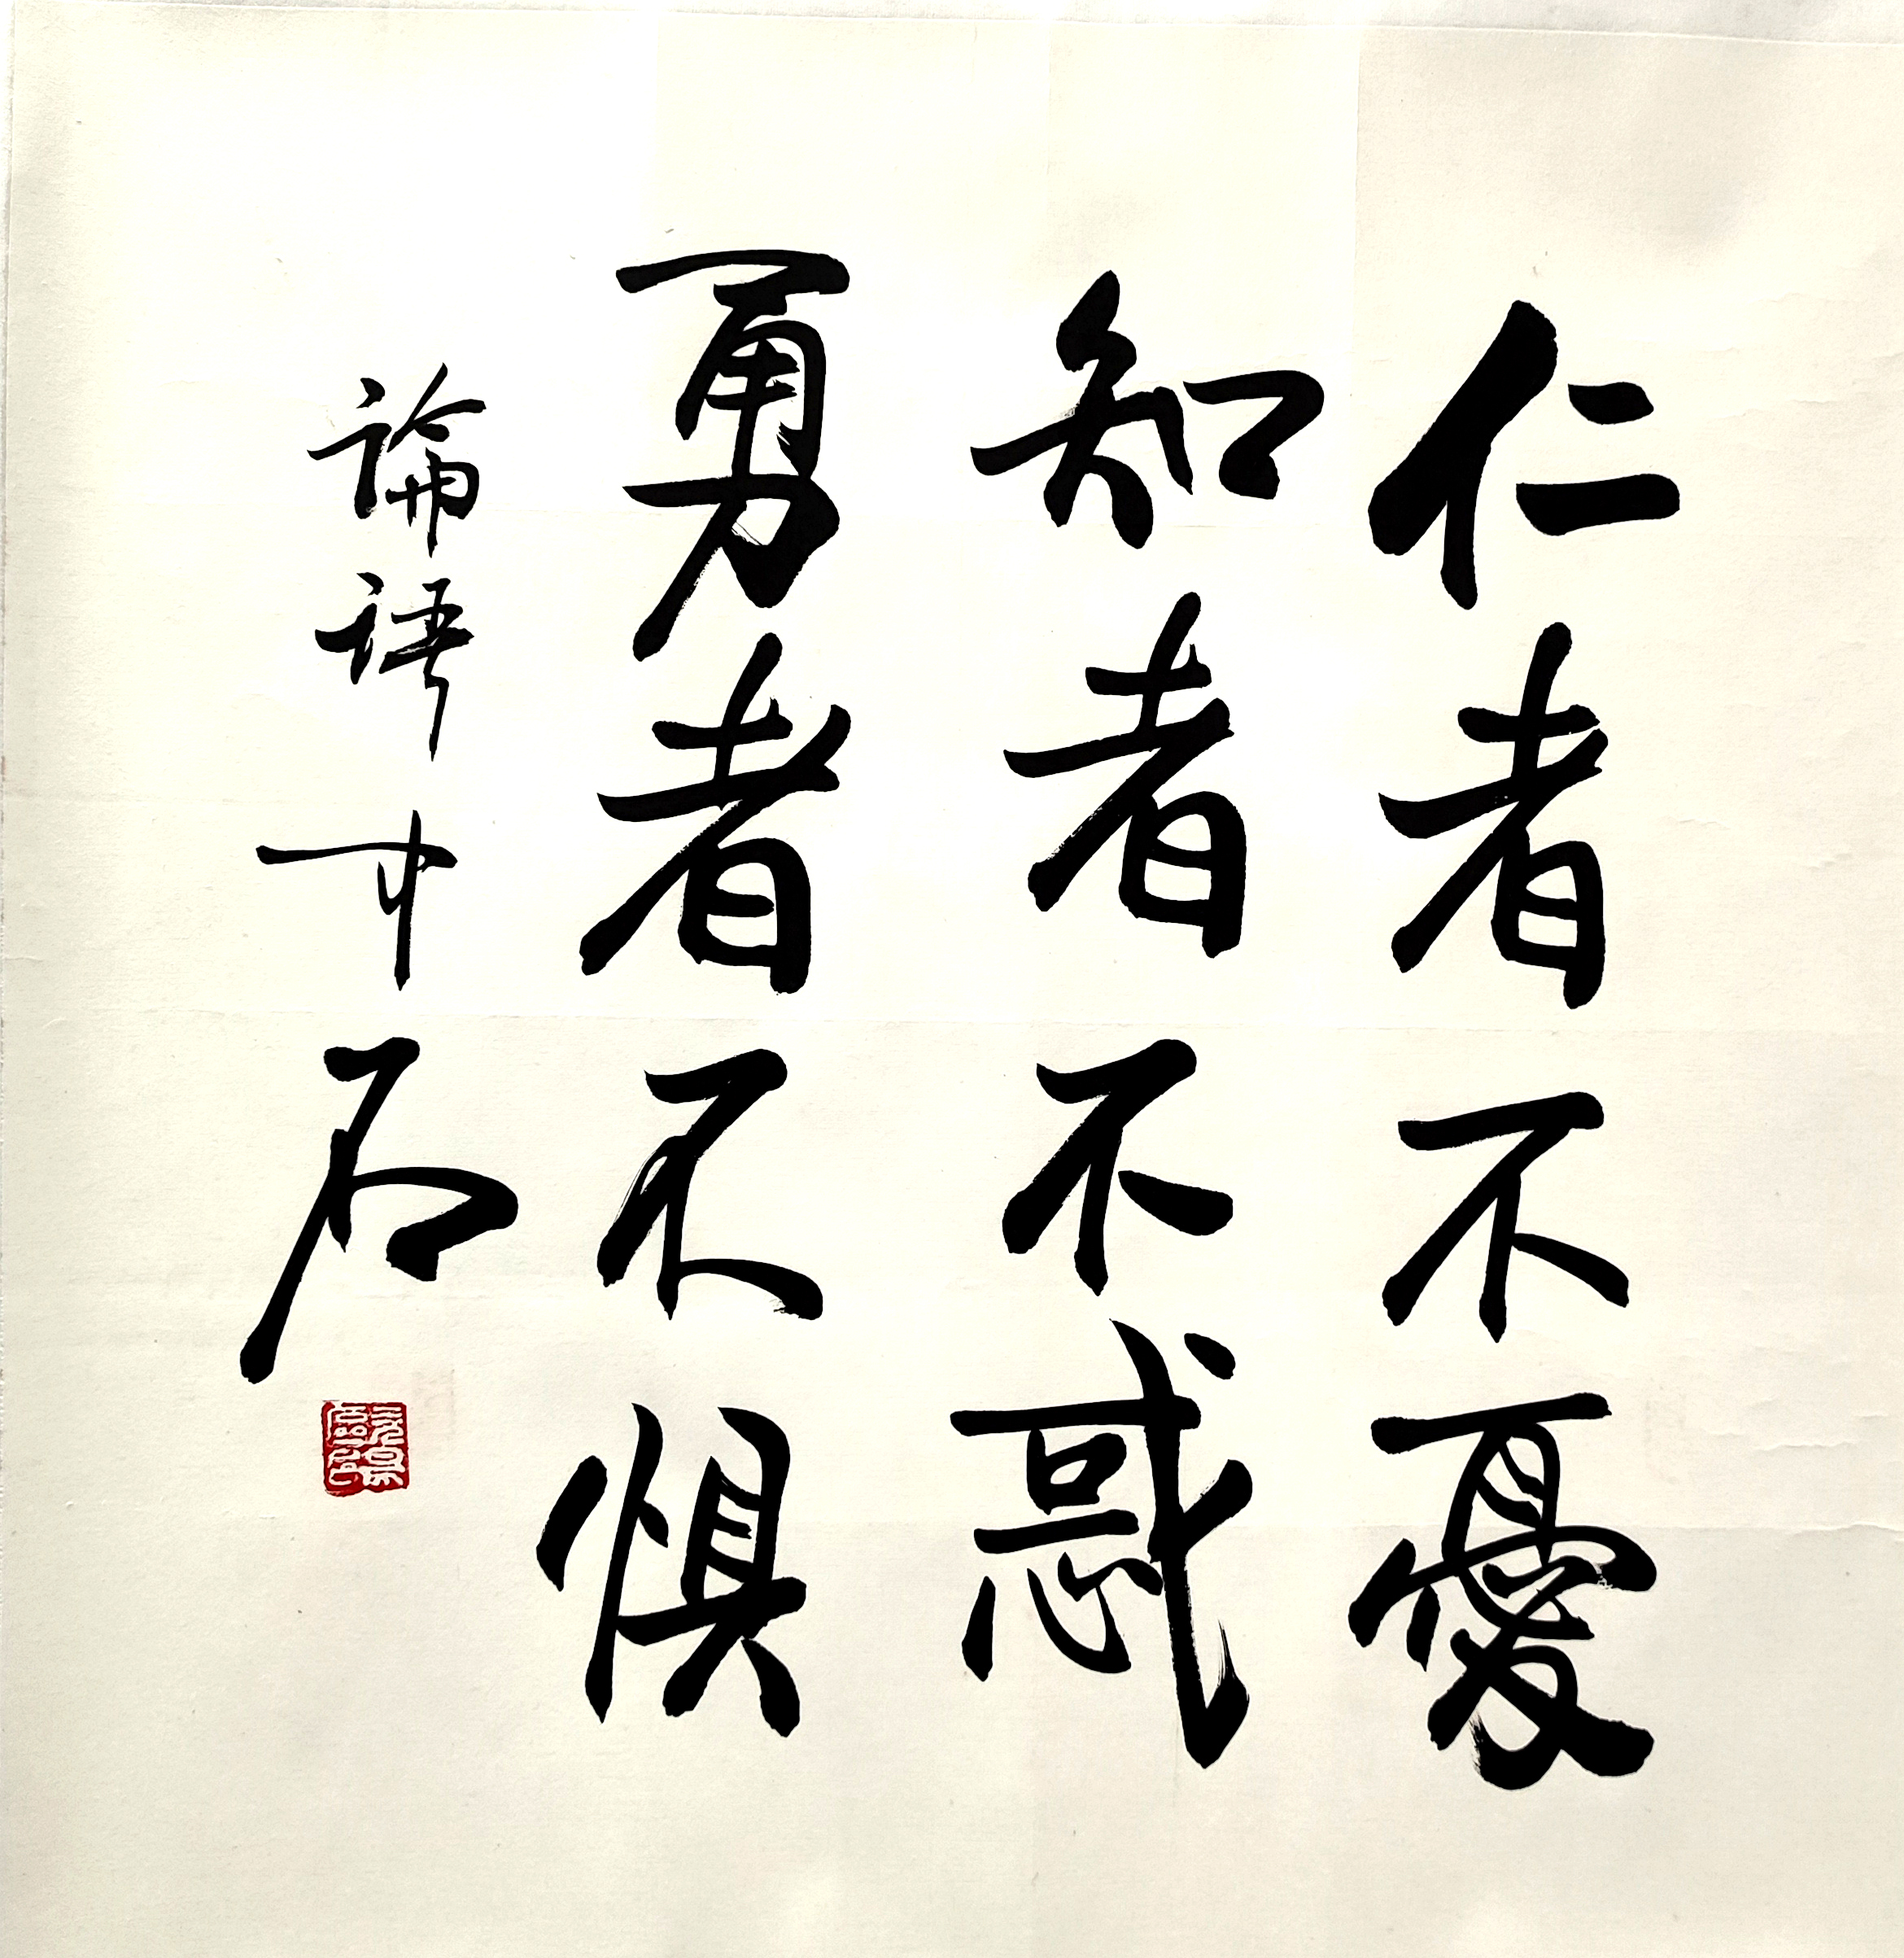 仁者不憂
知者不惑
勇者不懼
論語